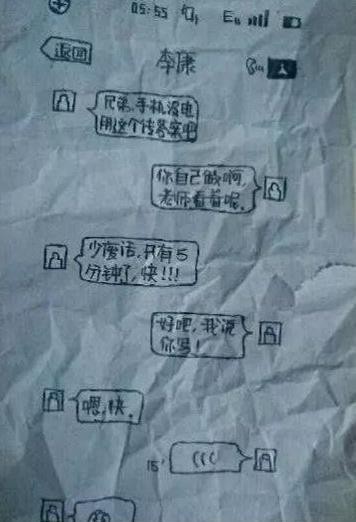 05:55
E
返回
李康
兄弟,手机没电
用这个传答案吧
你自己做啊,
老师看着呢。
少废话,只有5
分钟了,快!!!
好吧,我说
你写!
嗯,快。
15"